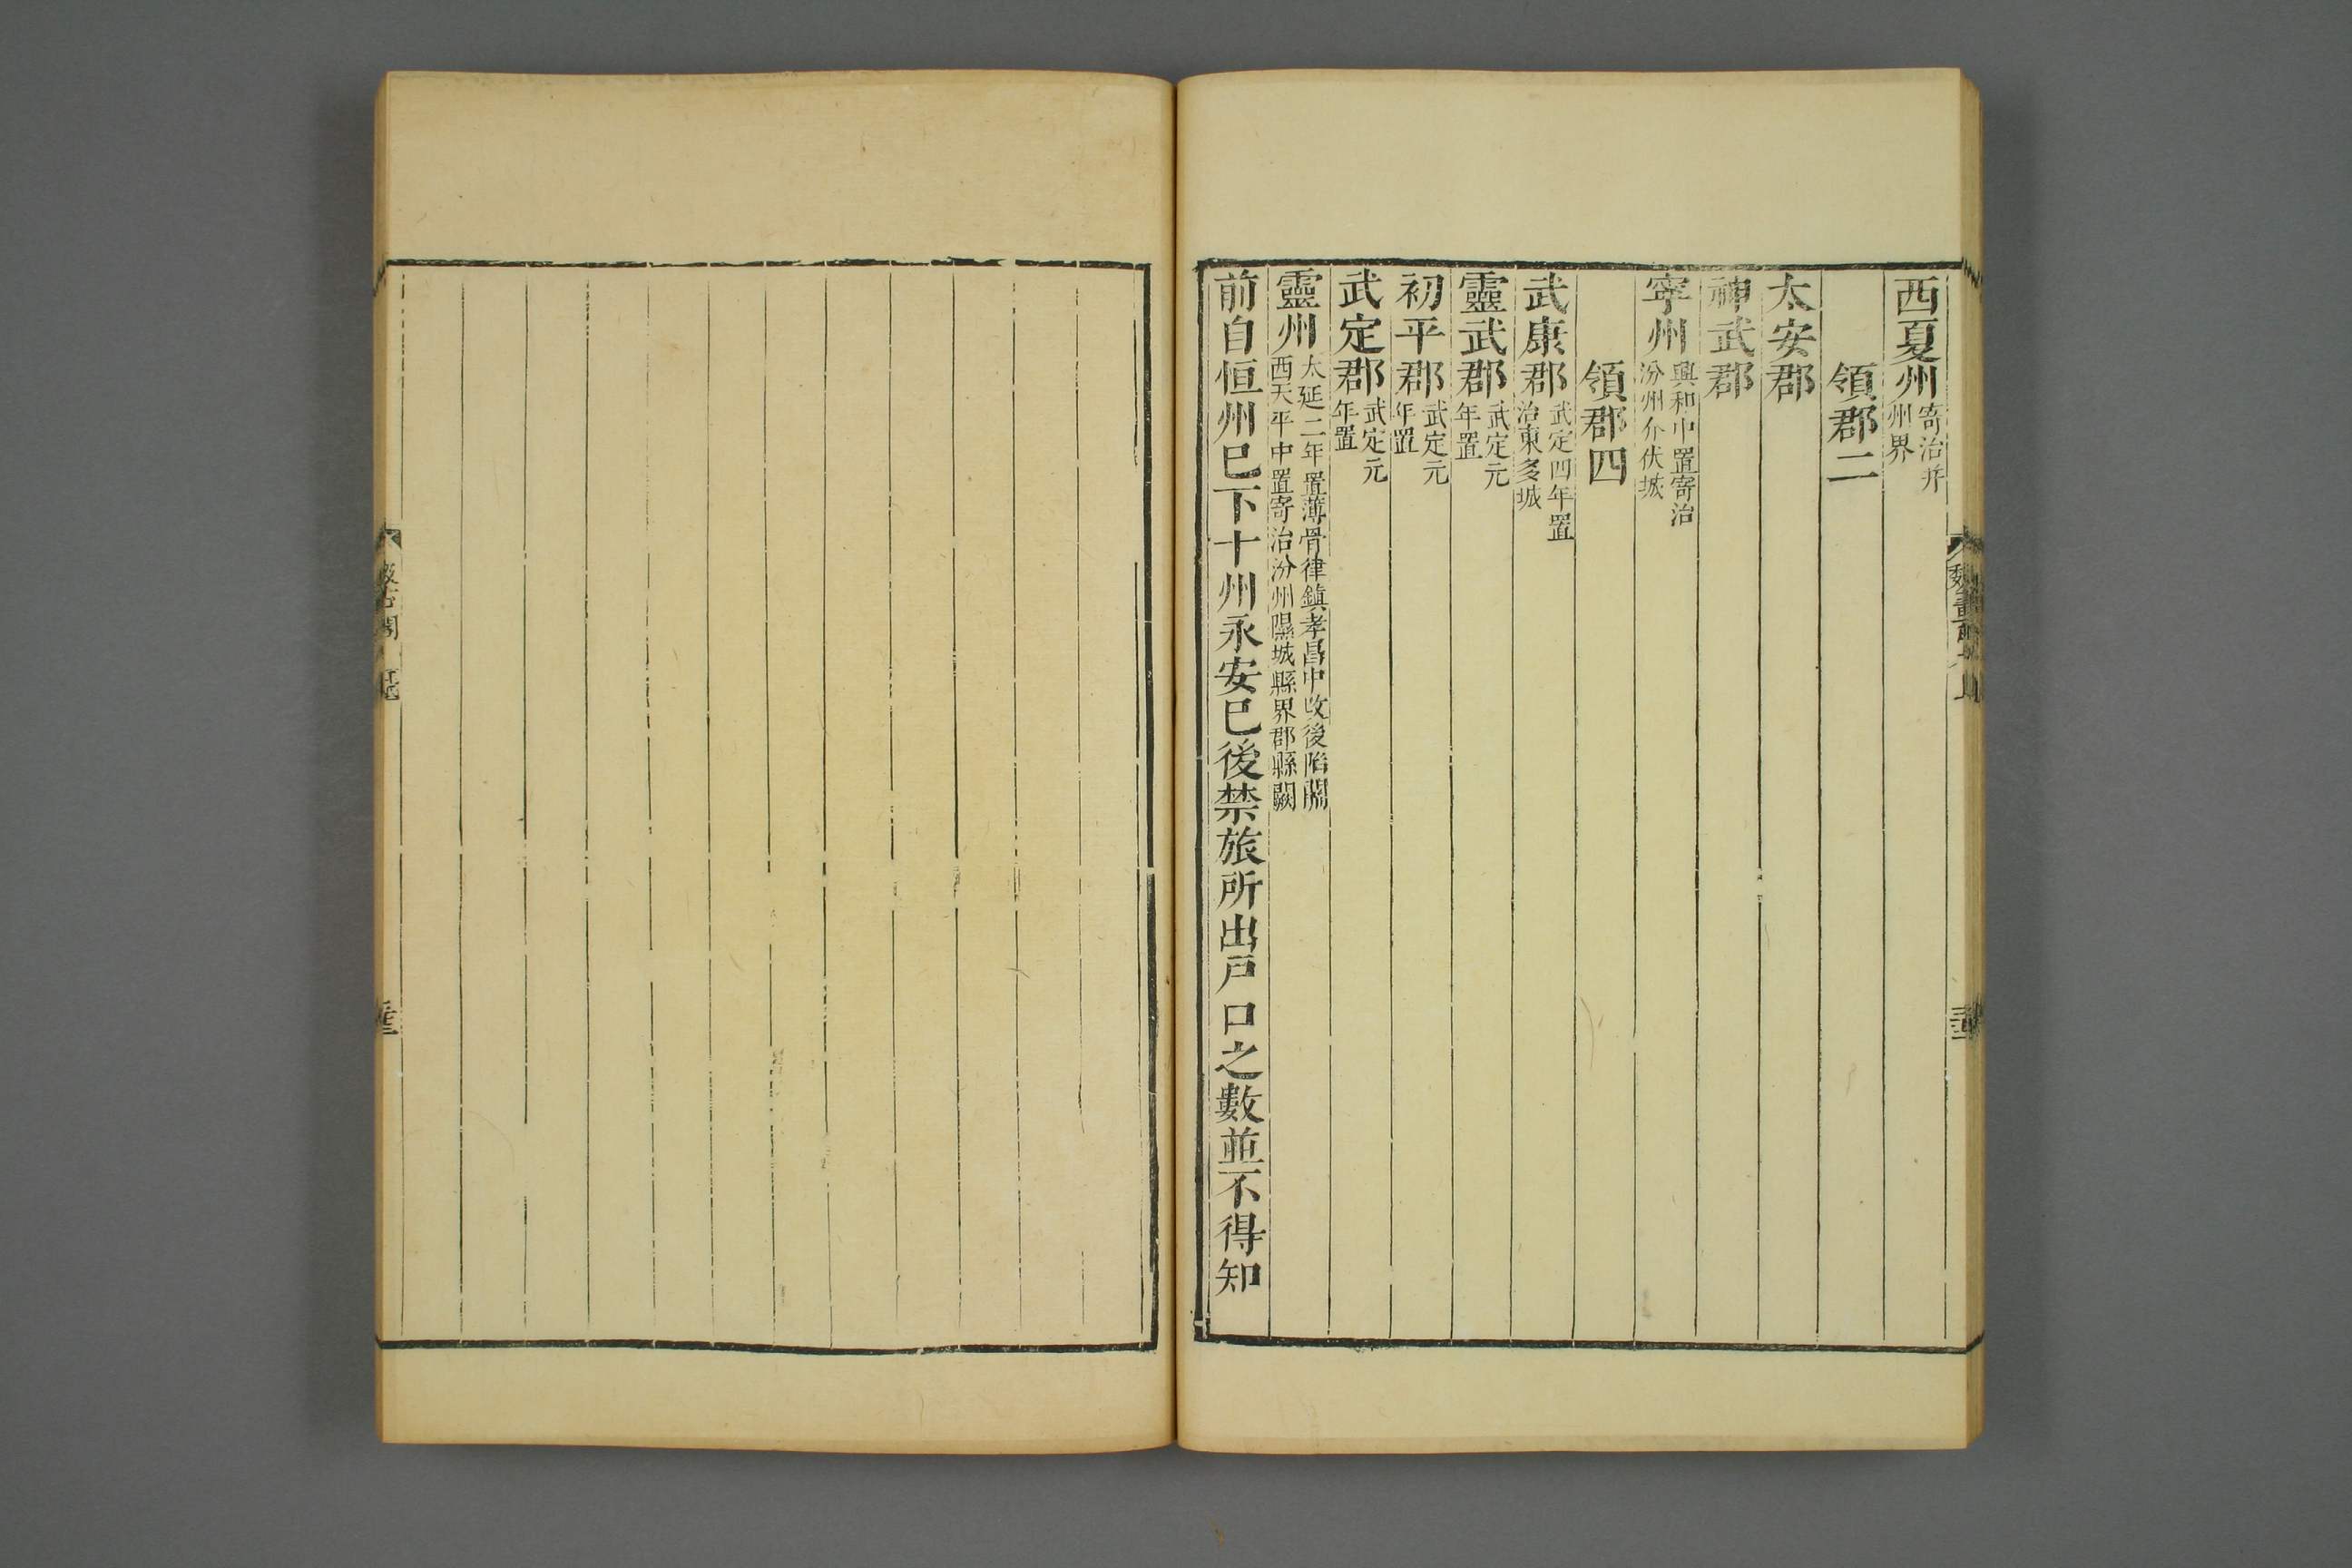 西夏州寄治并州界
領郡二
太安郡
神武郡
寧州興和中置寄治汾州介伏城
領郡四
武康郡武定四年置治東多城
靈武郡武定元年置
初平郡武定元年置
武定郡武定元年置
靈州太延二年置薄骨律鎮孝昌中改後陷關西天平中置寄治汾州隰城縣界郡縣闕
前自恒州已下十州永安已後禁旅所出戸口之數並不得知